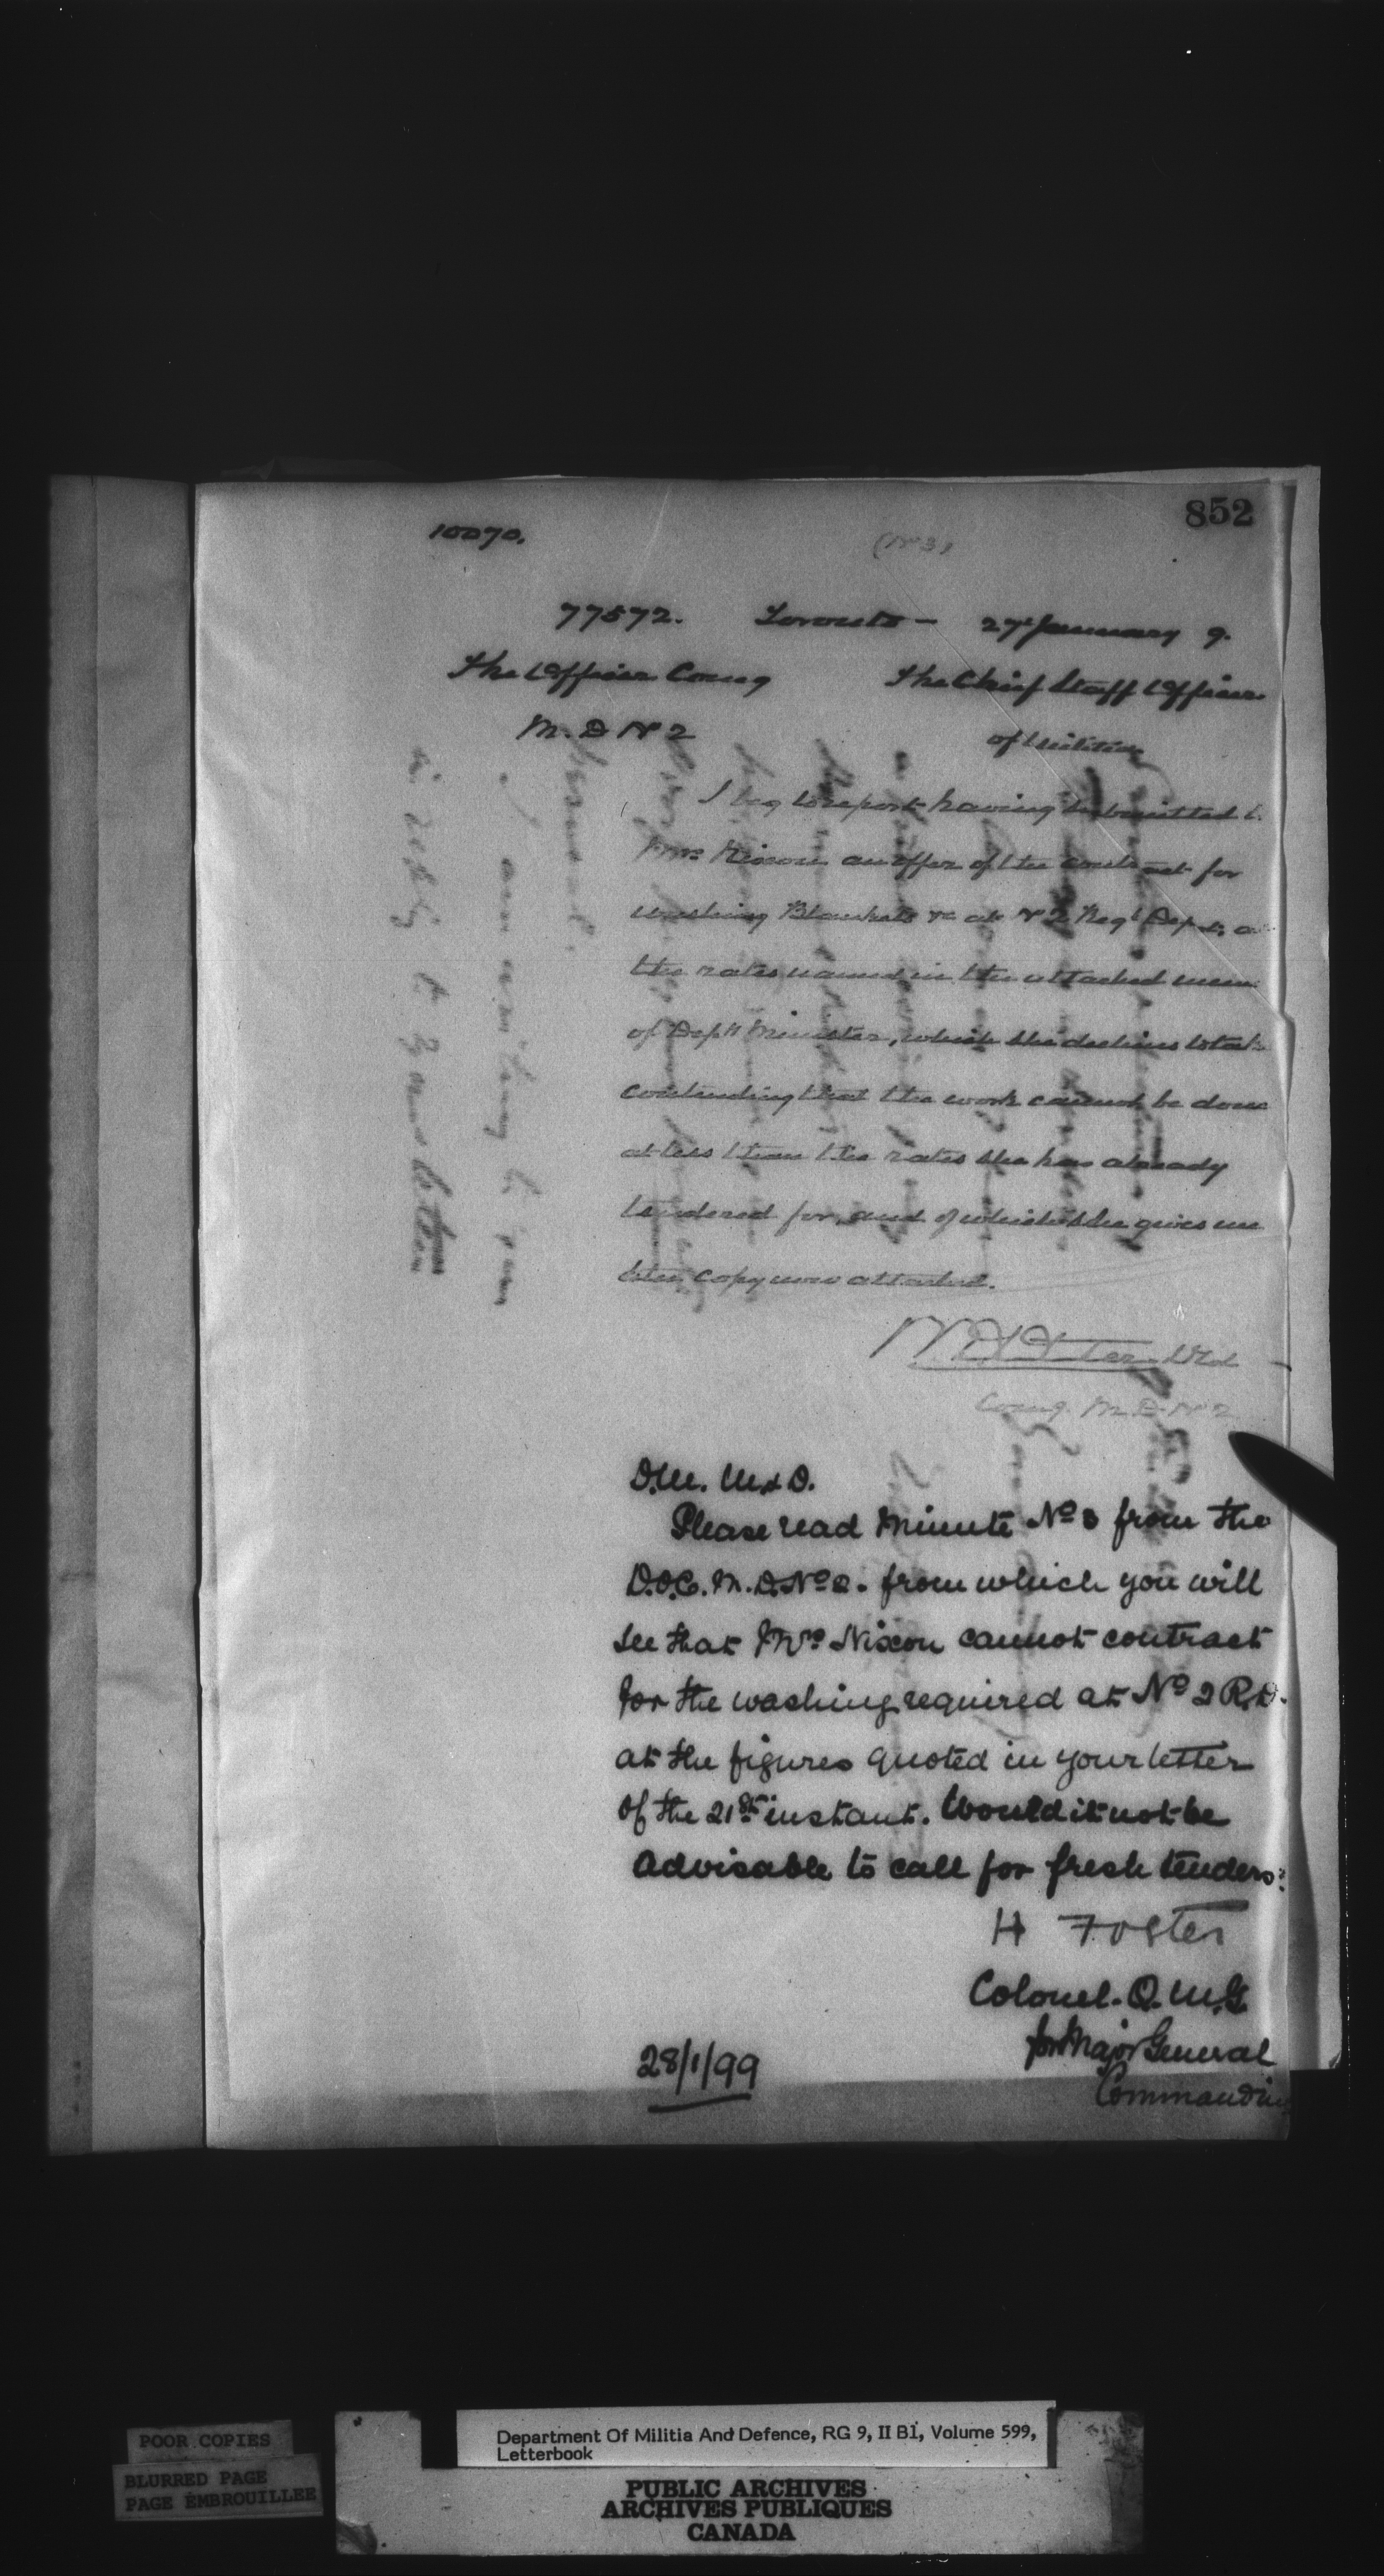 852
10070.
(No 3)
77572. Toronto - 27 January 9.
The Officer Comg The Chief Staff Officer
M. D No 2 of Militia
I beg to report having submitted to
Mrs Nixon an offer of the contract for
washing Blankets &c at No 2 Regl Depot, at
the rates named in the attached memo
of Depy Minister, which she declines to take
contending that the work cannot be done
at less than the rates she has already
tendered for, and of which she gives me
the copy now attached.
Comg. M. D. No 2
D.M. M&D.
Please read Minute No 3 from the
D.O.C. M. D. No 2. from which you will
see that Mrs Nixon cannot contract
for the washing required at No 2 R.D.
at the figures quoted in your letter
of the 21st instant. Would it not be
advisable to call for fresh tenders?
H Foster
Colonel. Q.M.G.
for Major General
Commanding
28/1/99
POOR COPIES
BLURRED PAGE
PAGE EMBROUILLEE
Department Of Militia And Defence, RG 9, II B1, Volume 599,
Letterbook
PUBLIC ARCHIVES
ARCHIVES PUBLIQUES
CANADA